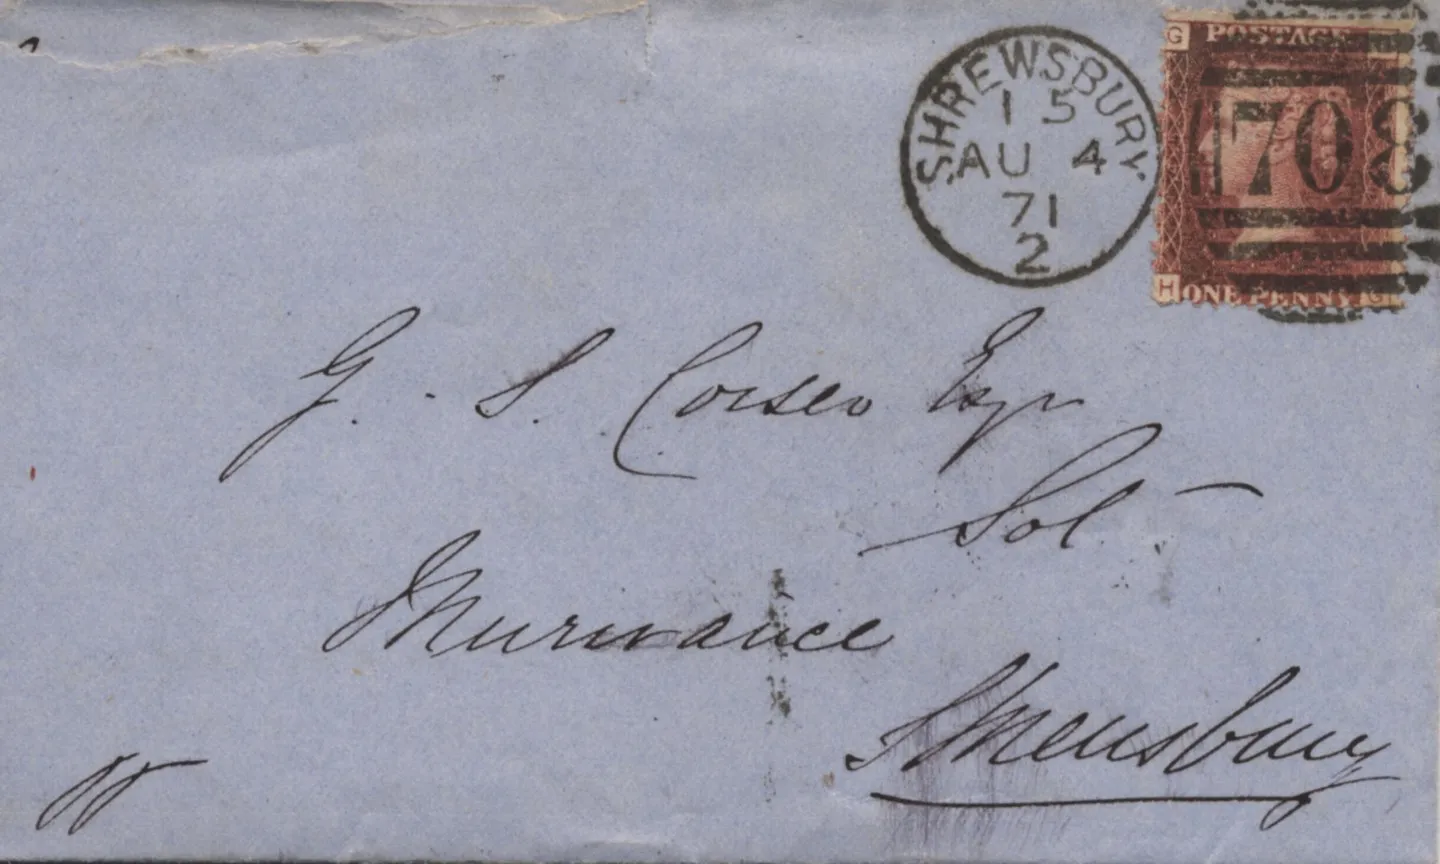 SHREWSBURY
15
AU 4
71
2
G POSTAGE
708
H ONE PENNY G
G. S. Corser Esqr
Sol
Shrewsbury